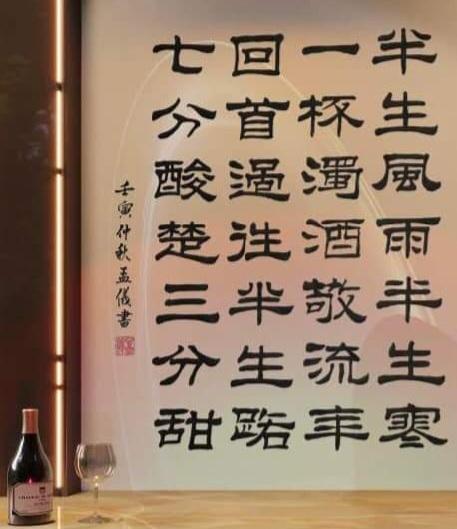 半生風雨半生寒
一杯濁酒敬流年
回首過往半生路
七分酸楚三分甜
壬寅仲秋孟儀書